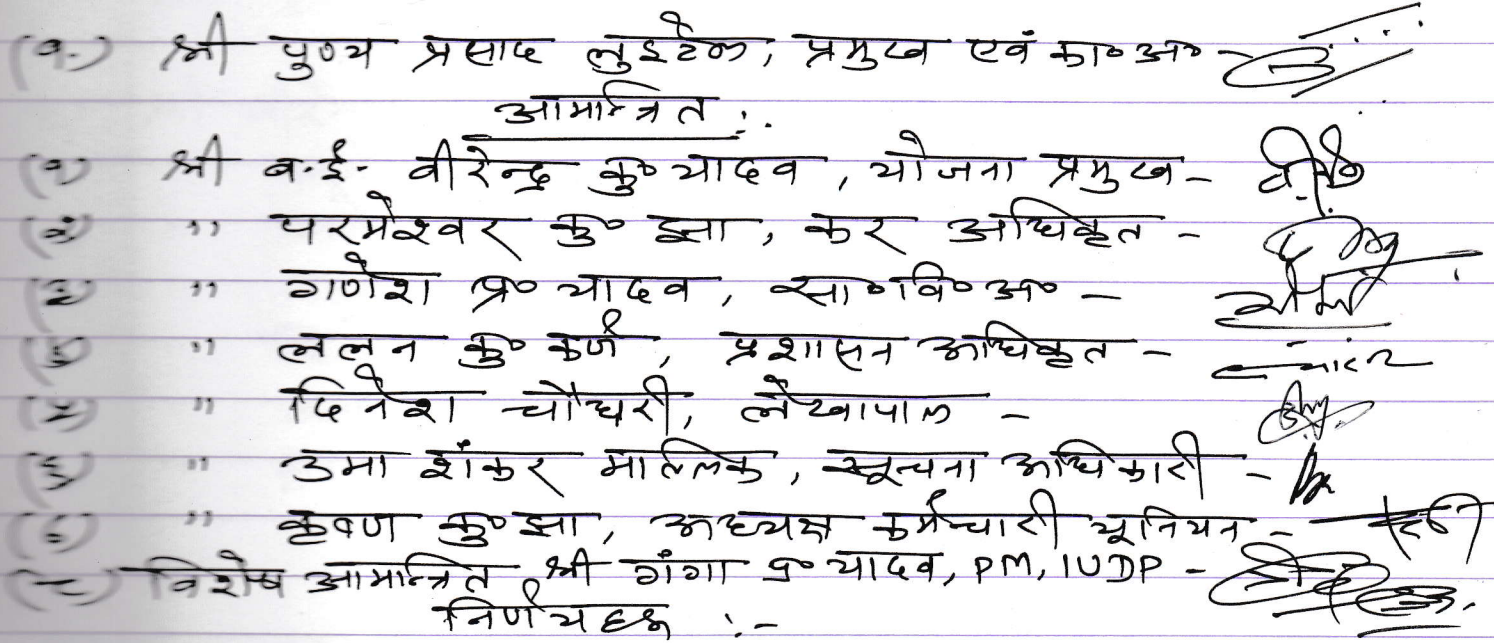 (१.) श्री पुण्य प्रसाद लुइटेल, प्रमुख एवं का॰अ॰
आमान्त्रित :.
(१) श्री व.ई. वीरेन्द्र कु॰ यादव, योजना प्रमुख -
(२) " परमेश्वर कु॰ झा, कर अधिकृत -
(३) " गणेश प्र॰ यादव, सा॰वि॰अ॰ -
(४) " ललन कु॰ कर्ण, प्रशासन अधिकृत -
(५) " दिनेश चौधरी, लेखापाल -
(६) " उमा शंकर मल्लिक, सूचना अधिकारी -
(७) " कृष्ण कु॰ झा, अध्यक्ष कर्मचारी यूनियन -
(८) विशेष आमान्त्रित श्री गंगा प्र॰ यादव, PM, IUDP -
निर्णयहरू :-